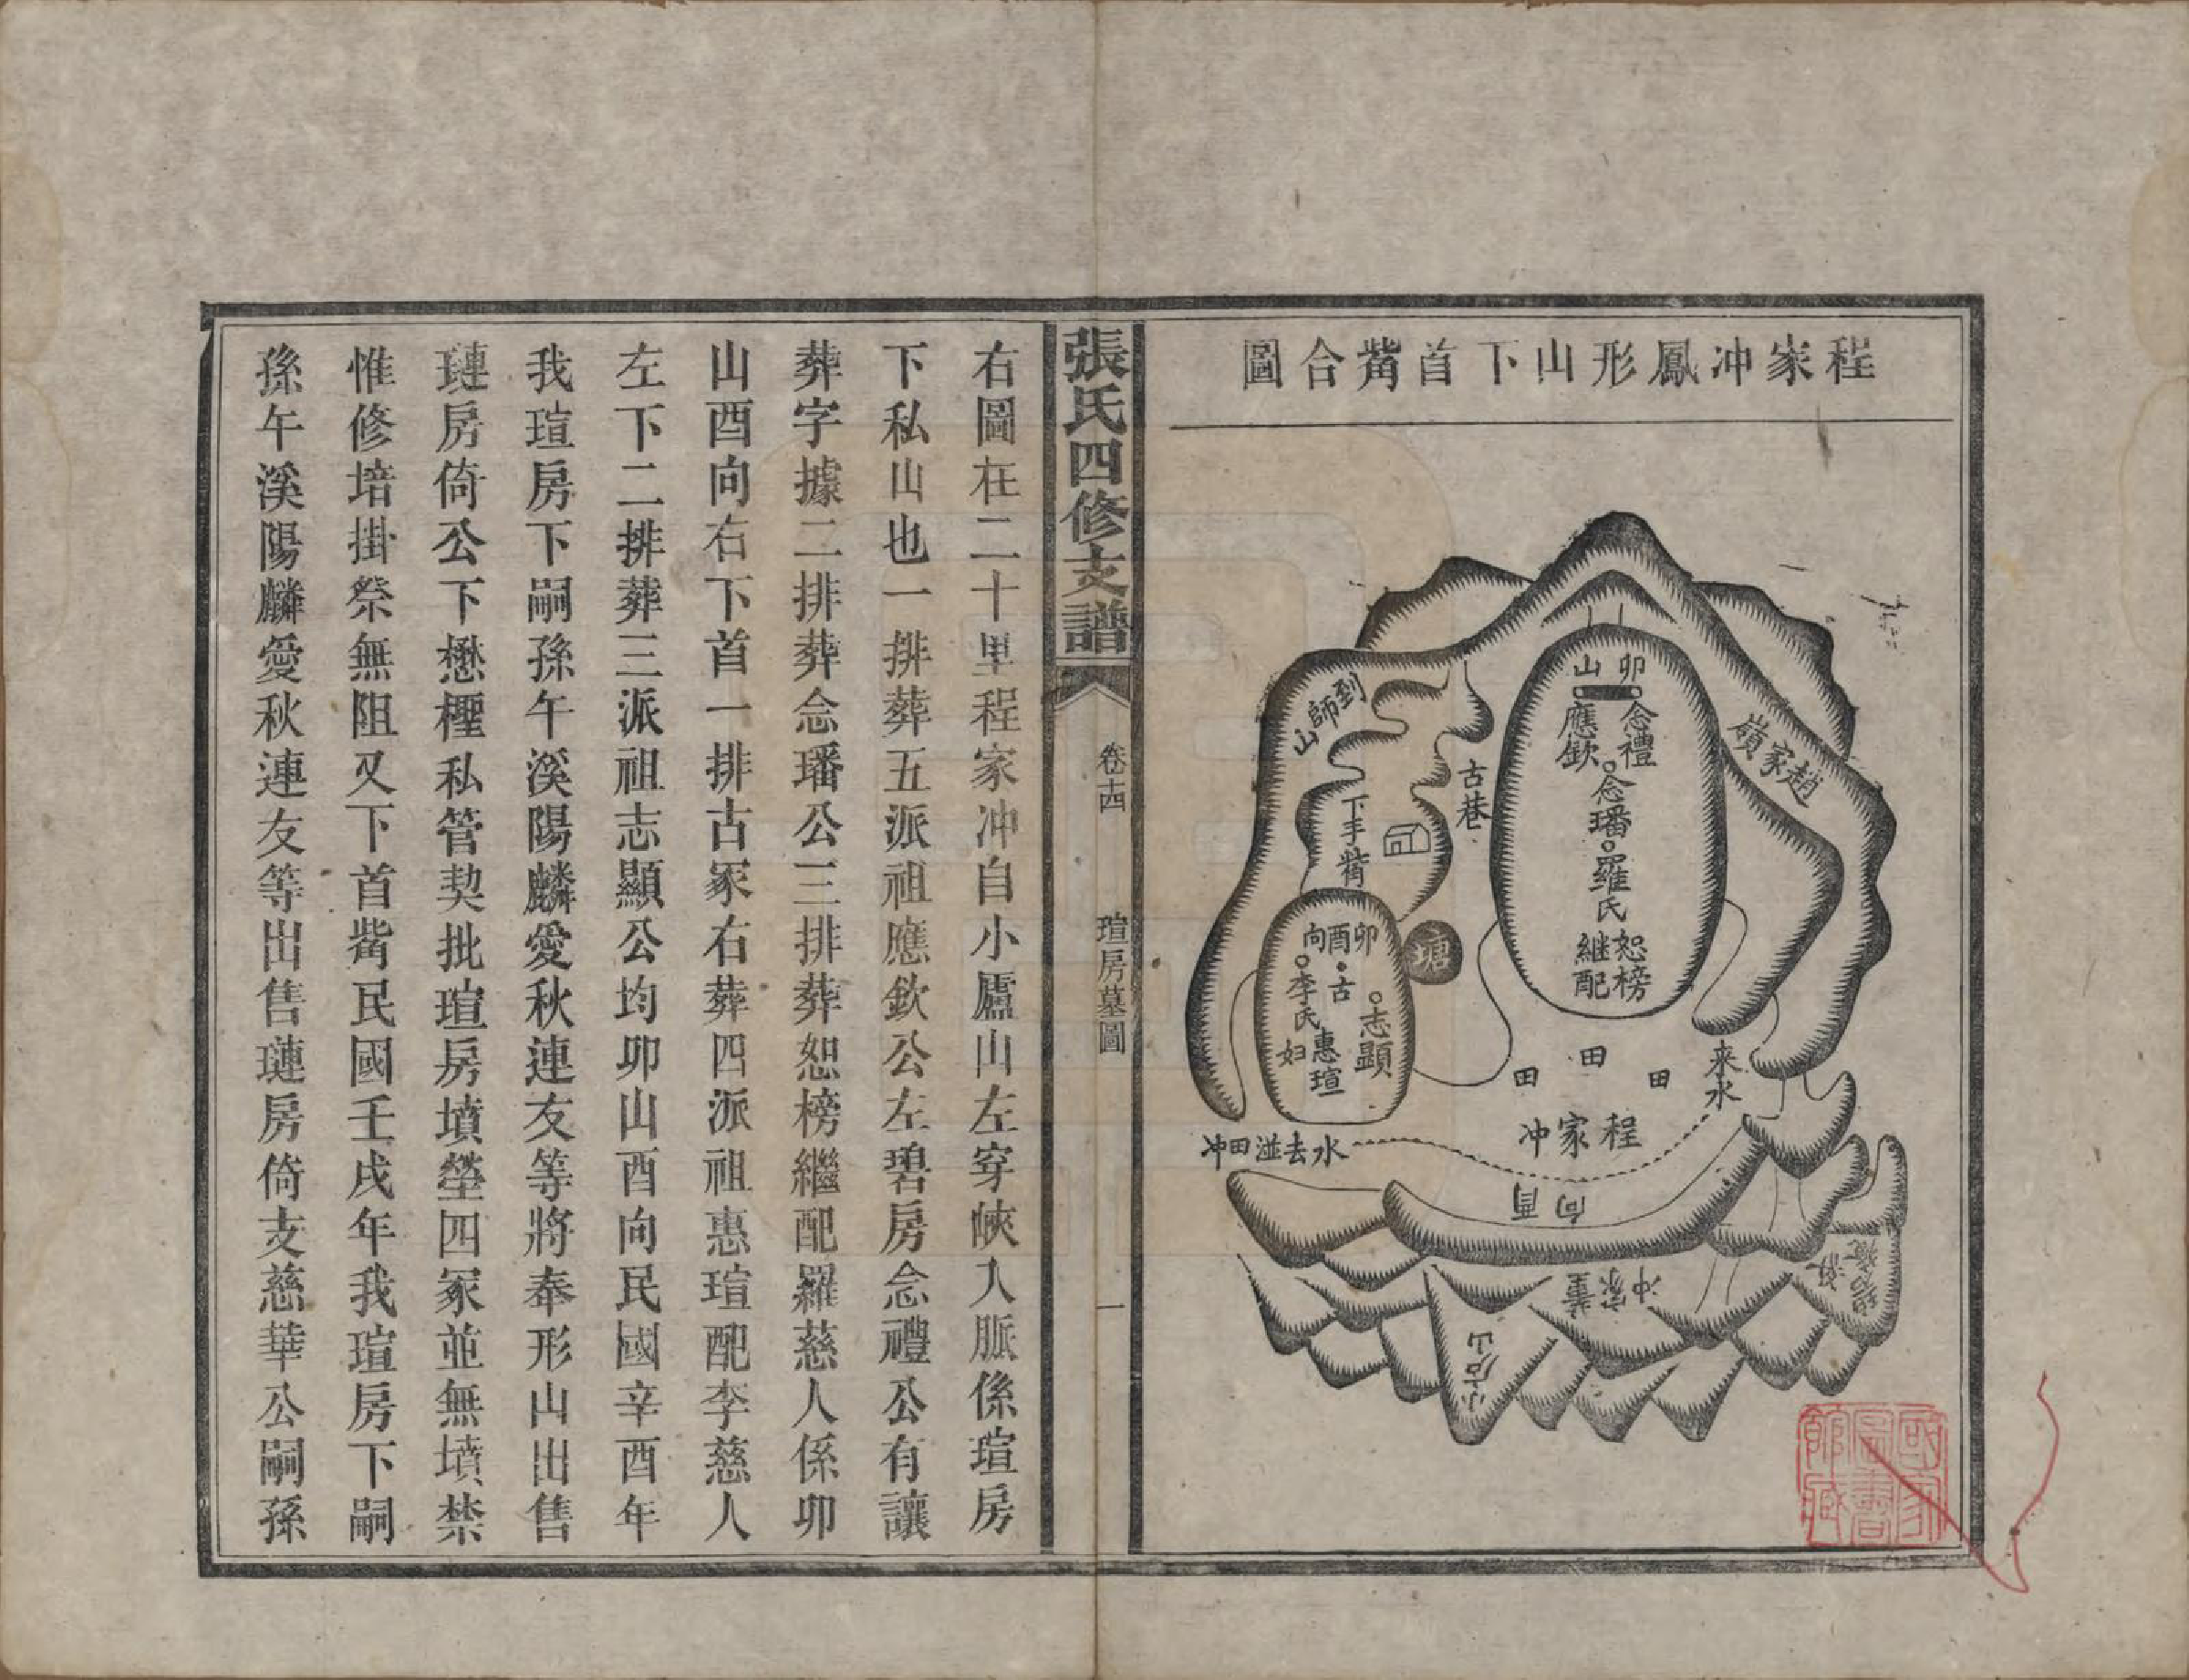 程家冲鳳形山下首觜合圖
卯山
念禮
應欽
念璠
羅氏
恕榜
継配
趙家嶺
到師山
古巷
下手觜
塘
卯酉向
古
李氏
志顯
惠瑄
妇
田
田
田
来水
程家冲
水去澁田冲
向酉
董家冲
小店山
國家圖書館藏
張氏四修支譜
卷十四
瑄房墓圖
一
右圖在二十里程家冲自小廬山左穿峽入脈係瑄房
下私山也一排葬五派祖應欽公左碧房念禮公有讓
葬字據二排葬念璠公三排葬恕榜繼配羅慈人係卯
山酉向右下首一排古冢右葬四派祖惠瑄配李慈人
左下二排葬三派祖志顯公均卯山酉向民國辛酉年
我瑄房下嗣孫午溪陽麟愛秋連友等將奉形山出售
璉房倚公下懋檉私管契批瑄房墳塋四冢並無墳禁
惟修培掛祭無阻又下首觜民國壬戌年我瑄房下嗣
孫午溪陽麟愛秋連友等出售璉房倚支慈華公嗣孫